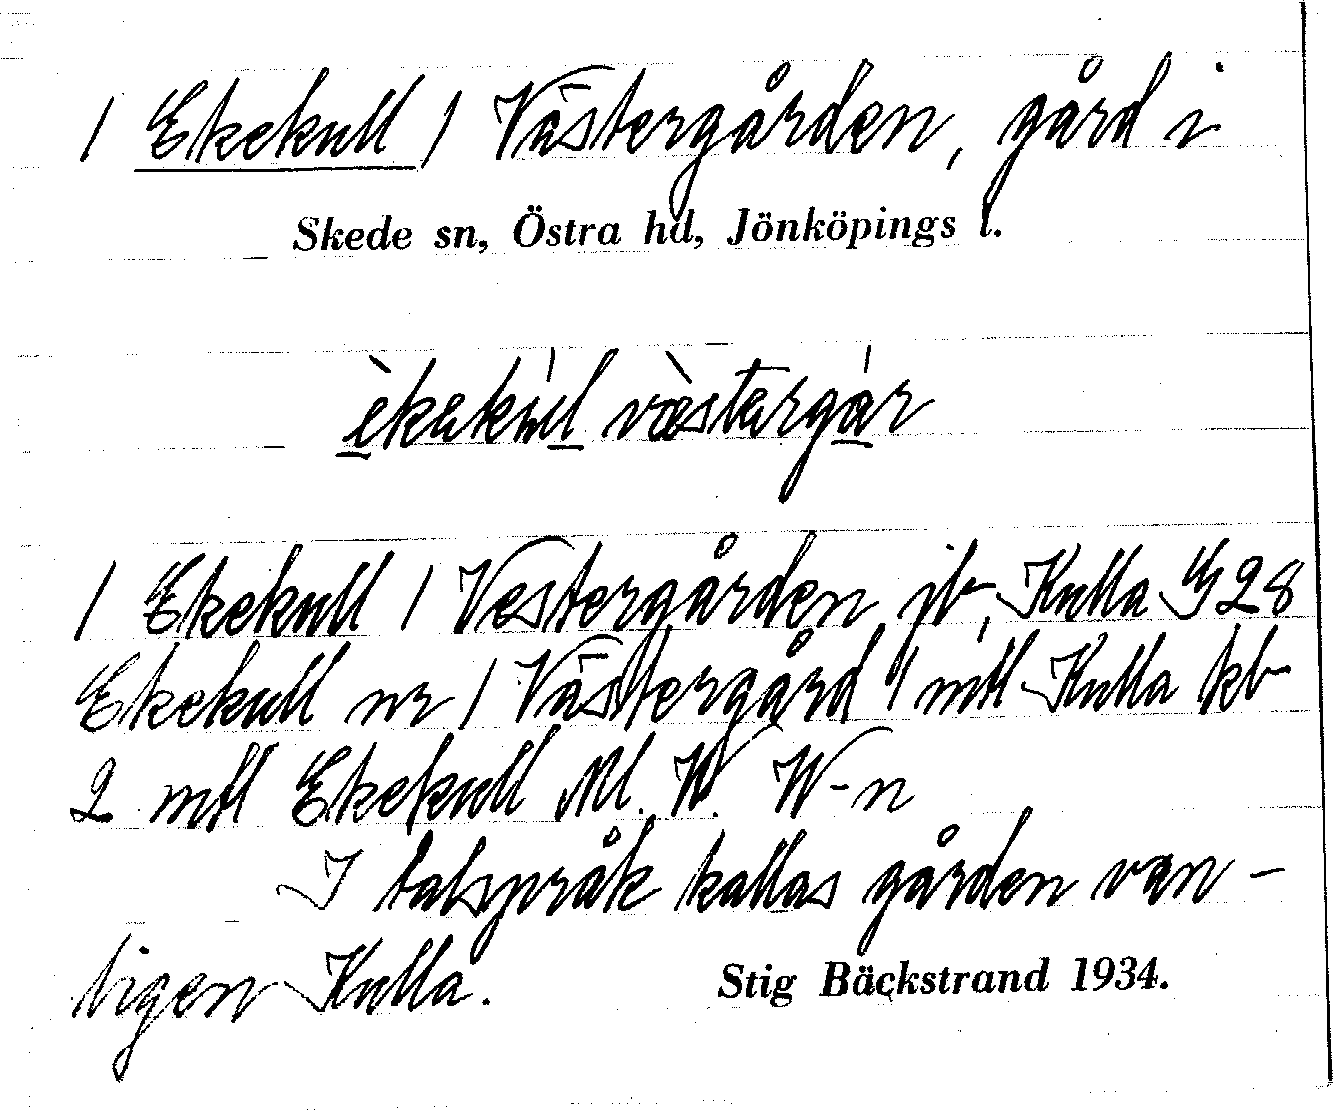 1 Ekekull / Västergården, gård i
Skede sn, Östra hd, Jönköpings l.
èkekùl væ̀stergár
1 Ekekull / Vestergården jb, Kulla G 28
Ekekull nr 1 Västergård 1 mtl Kulla kb
2 mtl Ekekull Al. W. W-n
I talspråk kallas gården van-
ligen Kulla.
Stig Bäckstrand 1934.